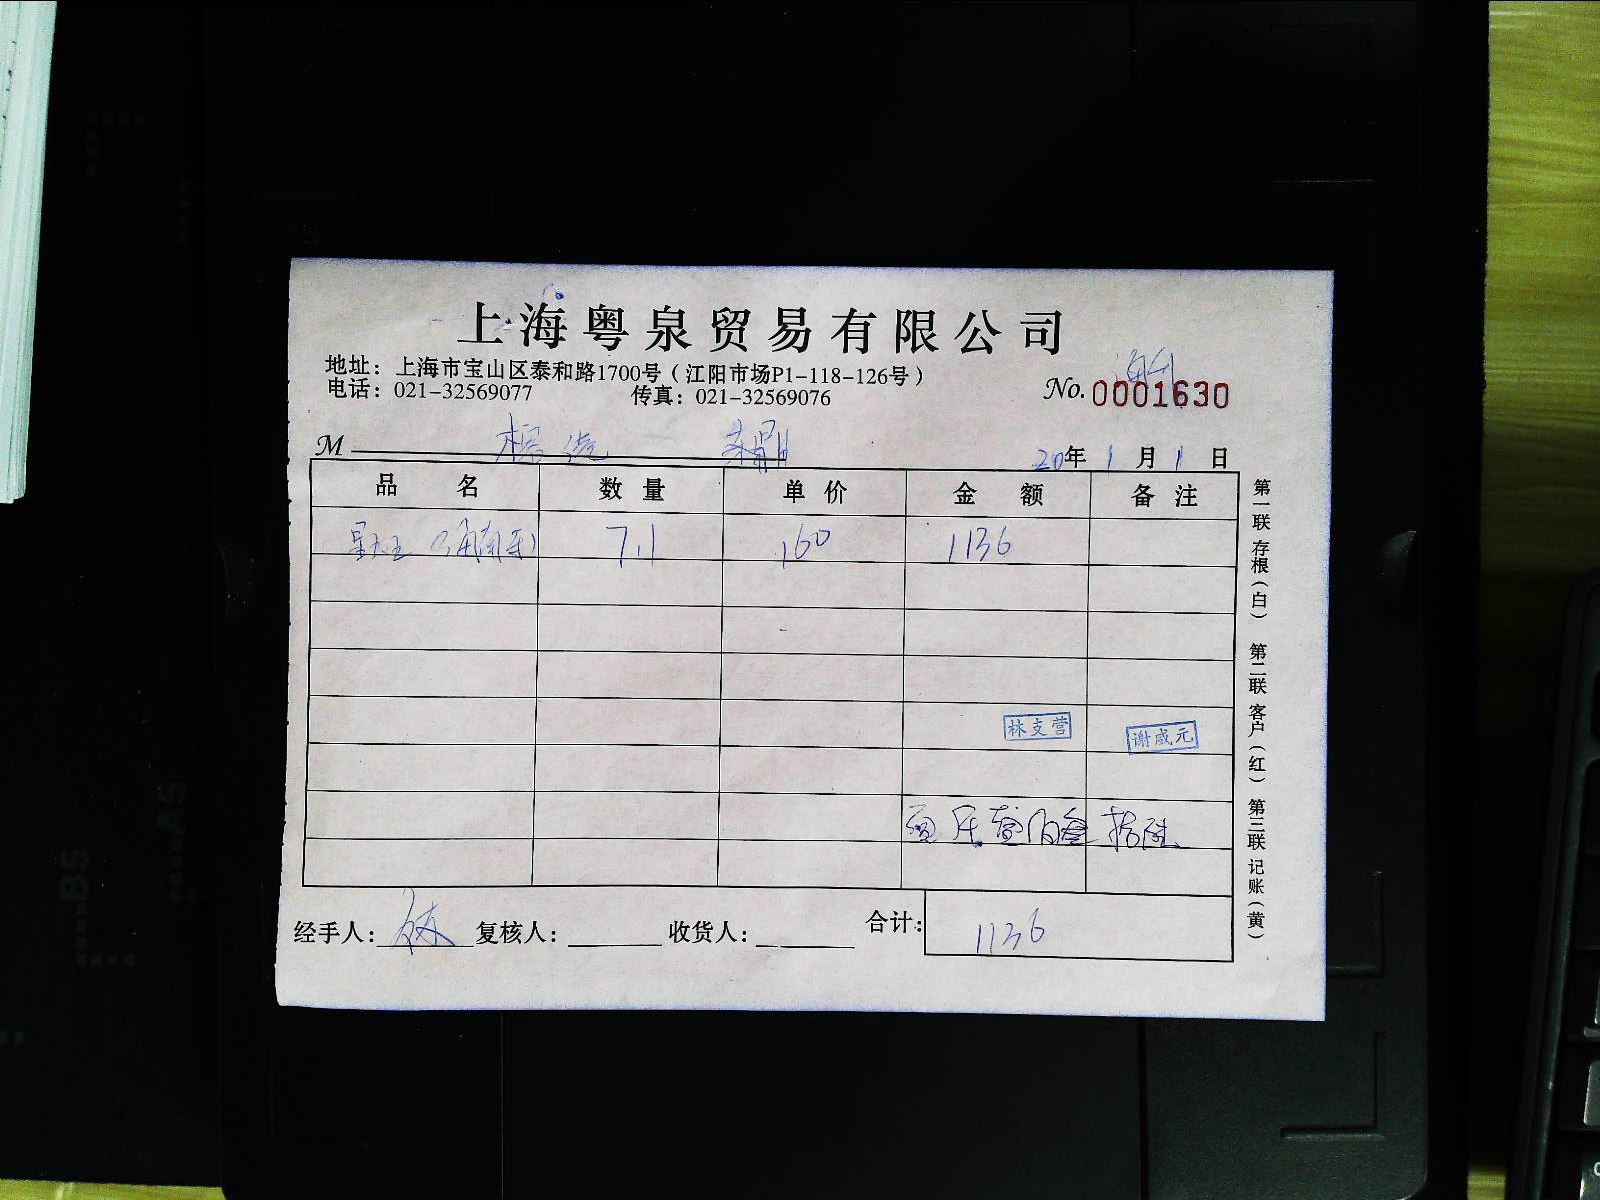 上海粤泉贸易有限公司
地址：上海市宝山区泰和路1700号（江阳市场P1-118-126号）
电话：021-32569077 传真：021-32569076
No. 0001630
M
20年1月1日
品名 数量 单价 金额 备注
7.1 160 1136
林支营
谢咸元
经手人： 复核人： 收货人： 合计： 1136
第一联 存根（白） 第二联 客户（红） 第三联 记账（黄）
B5
A5